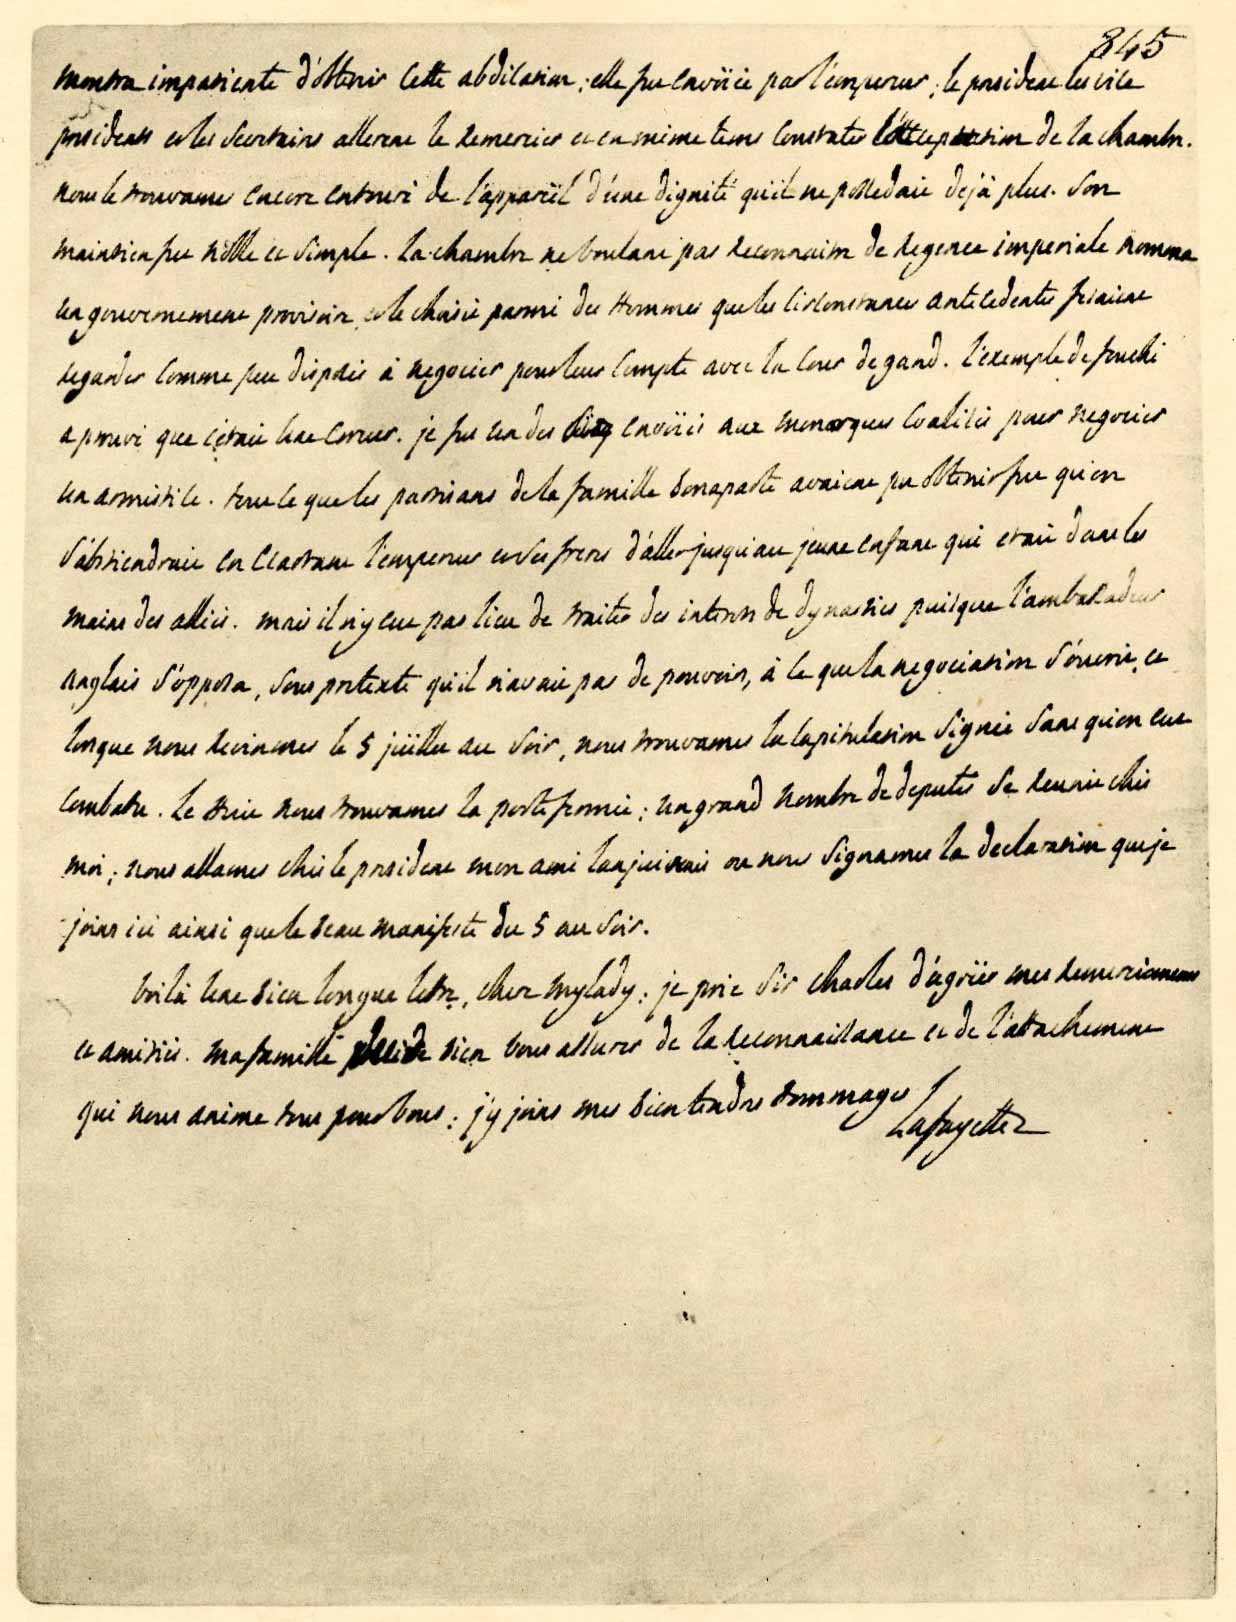 845
montra impatiente d'obtenir cette abdication; elle fut envoiée par l'empereur; le president les vice
presidents et les secretaires allerent le remercier et en même tems constater l'acceptation de la chambre.
nous le trouvames encore entouré de l'appareil d'une dignité qu'il ne possedait dejà plus. Son
maintien fut noble et simple. la chambre ne voulant pas reconnaitre de regence imperiale nomma
un gouvernement provisoire et le choisit parmi des hommes que les circonstances antecedentes fesaient
regarder comme peu disposés à negocier pour leur compte avec la cour de gand. l'exemple de fouché
a prouvé que c'était une erreur. je fus un des cinq envoiés aux monarques coalisés pour negocier
un armistice. tout ce que les partisans de la famille bonaparte avaient pu obtenir fut qu'on
s'abstiendrait en l'empereur et ses freres d'aller jusqu'au jeune enfant qui etait dans les
mains des alliés. mais il n'y eut pas lieu de traiter des interets de dynasties puisque l'ambassadeur
anglais s'opposa, sous pretexte qu'il n'avait pas de pouvoirs, à ce que la negociation s'ouvrit, et
lorsque nous revinmes le 5 juillet au soir, nous trouvames la capitulation signée sans qu'on eut
combatu. Le huit nous trouvames la porte fermée; un grand nombre de deputés se reunit chés
moi; nous allames chés le president mon ami lanjuinais ou nous signames la declaration que je
joins ici ainsi que le beau manifeste du 5 au soir.
voilà une bien longue letre, chere mylady; je prie Sir charles d'agréer mes remerciemens
et amitiés. ma famille bien vous assurer de la reconnaissance et de l'attachement
qui nous anime tous pour vous; j'y joins mes bien tendres hommages
Lafayette